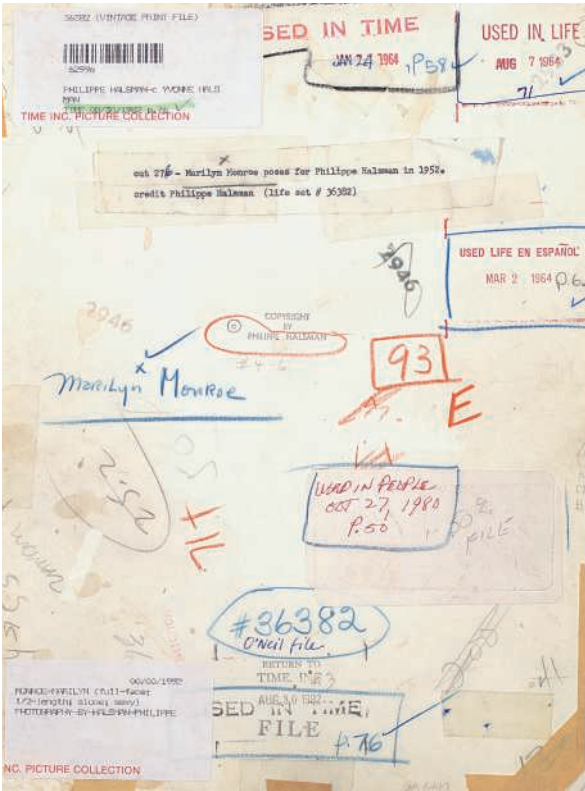 36382 (VINTAGE PRINT FILE)
62996
PHILIPPE HALSMAN-c YVONNE HALS
MAN
TIME p.76
TIME INC. PICTURE COLLECTION
SED IN TIME
JAN 24 1964 , P58
USED IN LIFE
AUG 7 1964
71
out 27 - Marilyn Monroe poses for Philippe Halsman in 1952.
credit Philippe Halsman (life set # 36382)
2946
USED LIFE EN ESPAÑOL
MAR 2 1964 p.6
2946
COPYRIGHT
BY
PHILIPPE HALSMAN
93
E
x
Marilyn Monroe
USED IN PEOPLE
OCT 27, 1980
P.50
FILE
#36382
O'Neil file
RETURN TO
TIME, INC
AUG 30 1982
SED IN TIME
FILE
p.76
00/00/1952
MONROE-MARILYN (full-face;
1/2-length; alone; sexy)
PHOTOGRAPHY-BY-HALSMAN-PHILIPPE
NC. PICTURE COLLECTION